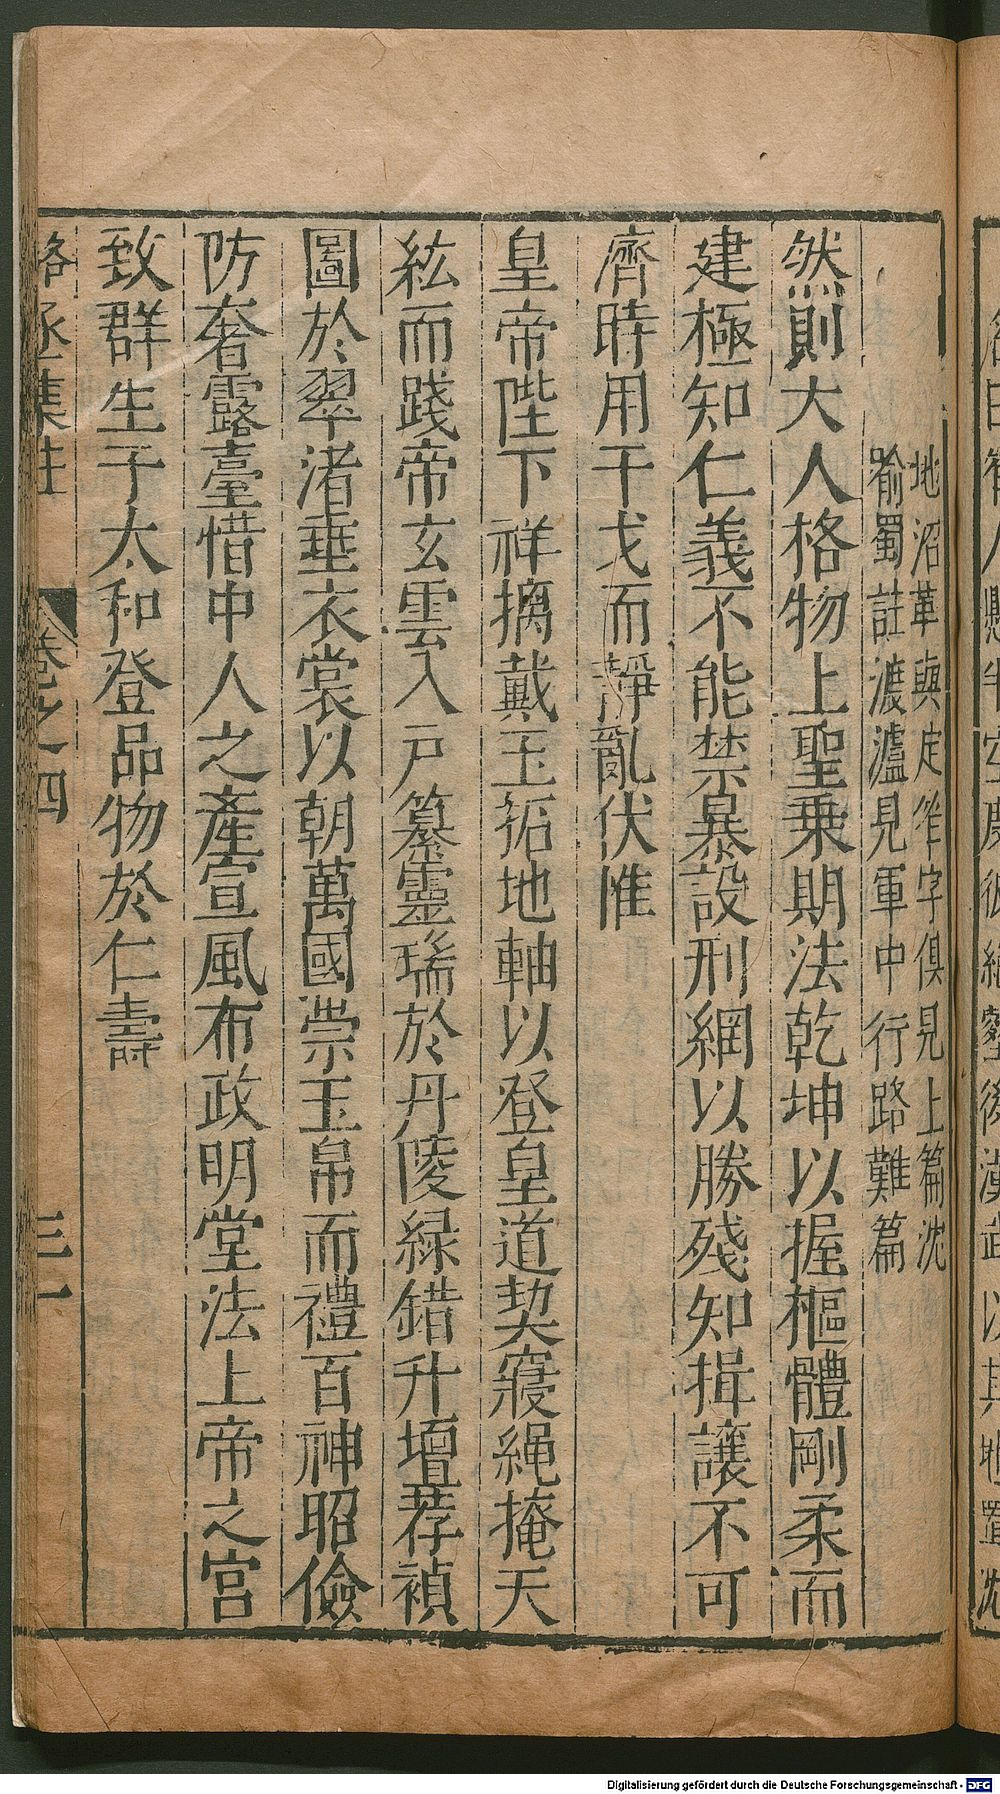 地沼革輿定筰字俱見上篇沈
㕙蜀註渡瀘見軍中行路難篇
然則大人格物上聖乗期法乾坤以握樞體剛柔而
建極知仁義不能禁暴設刑網以勝殘知揖讓不可
濟時用干戈而靜亂伏惟
皇帝陛下祥摛戴玉拓地軸以登皇道契寢繩掩天
紘而踐帝玄雲入戸纂靈瑞於丹陵緑錯升壇荐禎
圖於翠渚垂衣裳以朝萬國崇玉帛而禮百神昭儉
防奢露臺惜中人之產宣風布政明堂法上帝之宮
致群生子太和登品物於仁壽
駱丞集註 卷之四 三一
Digitalisierung gefördert durch die Deutsche Forschungsgemeinschaft - DFG